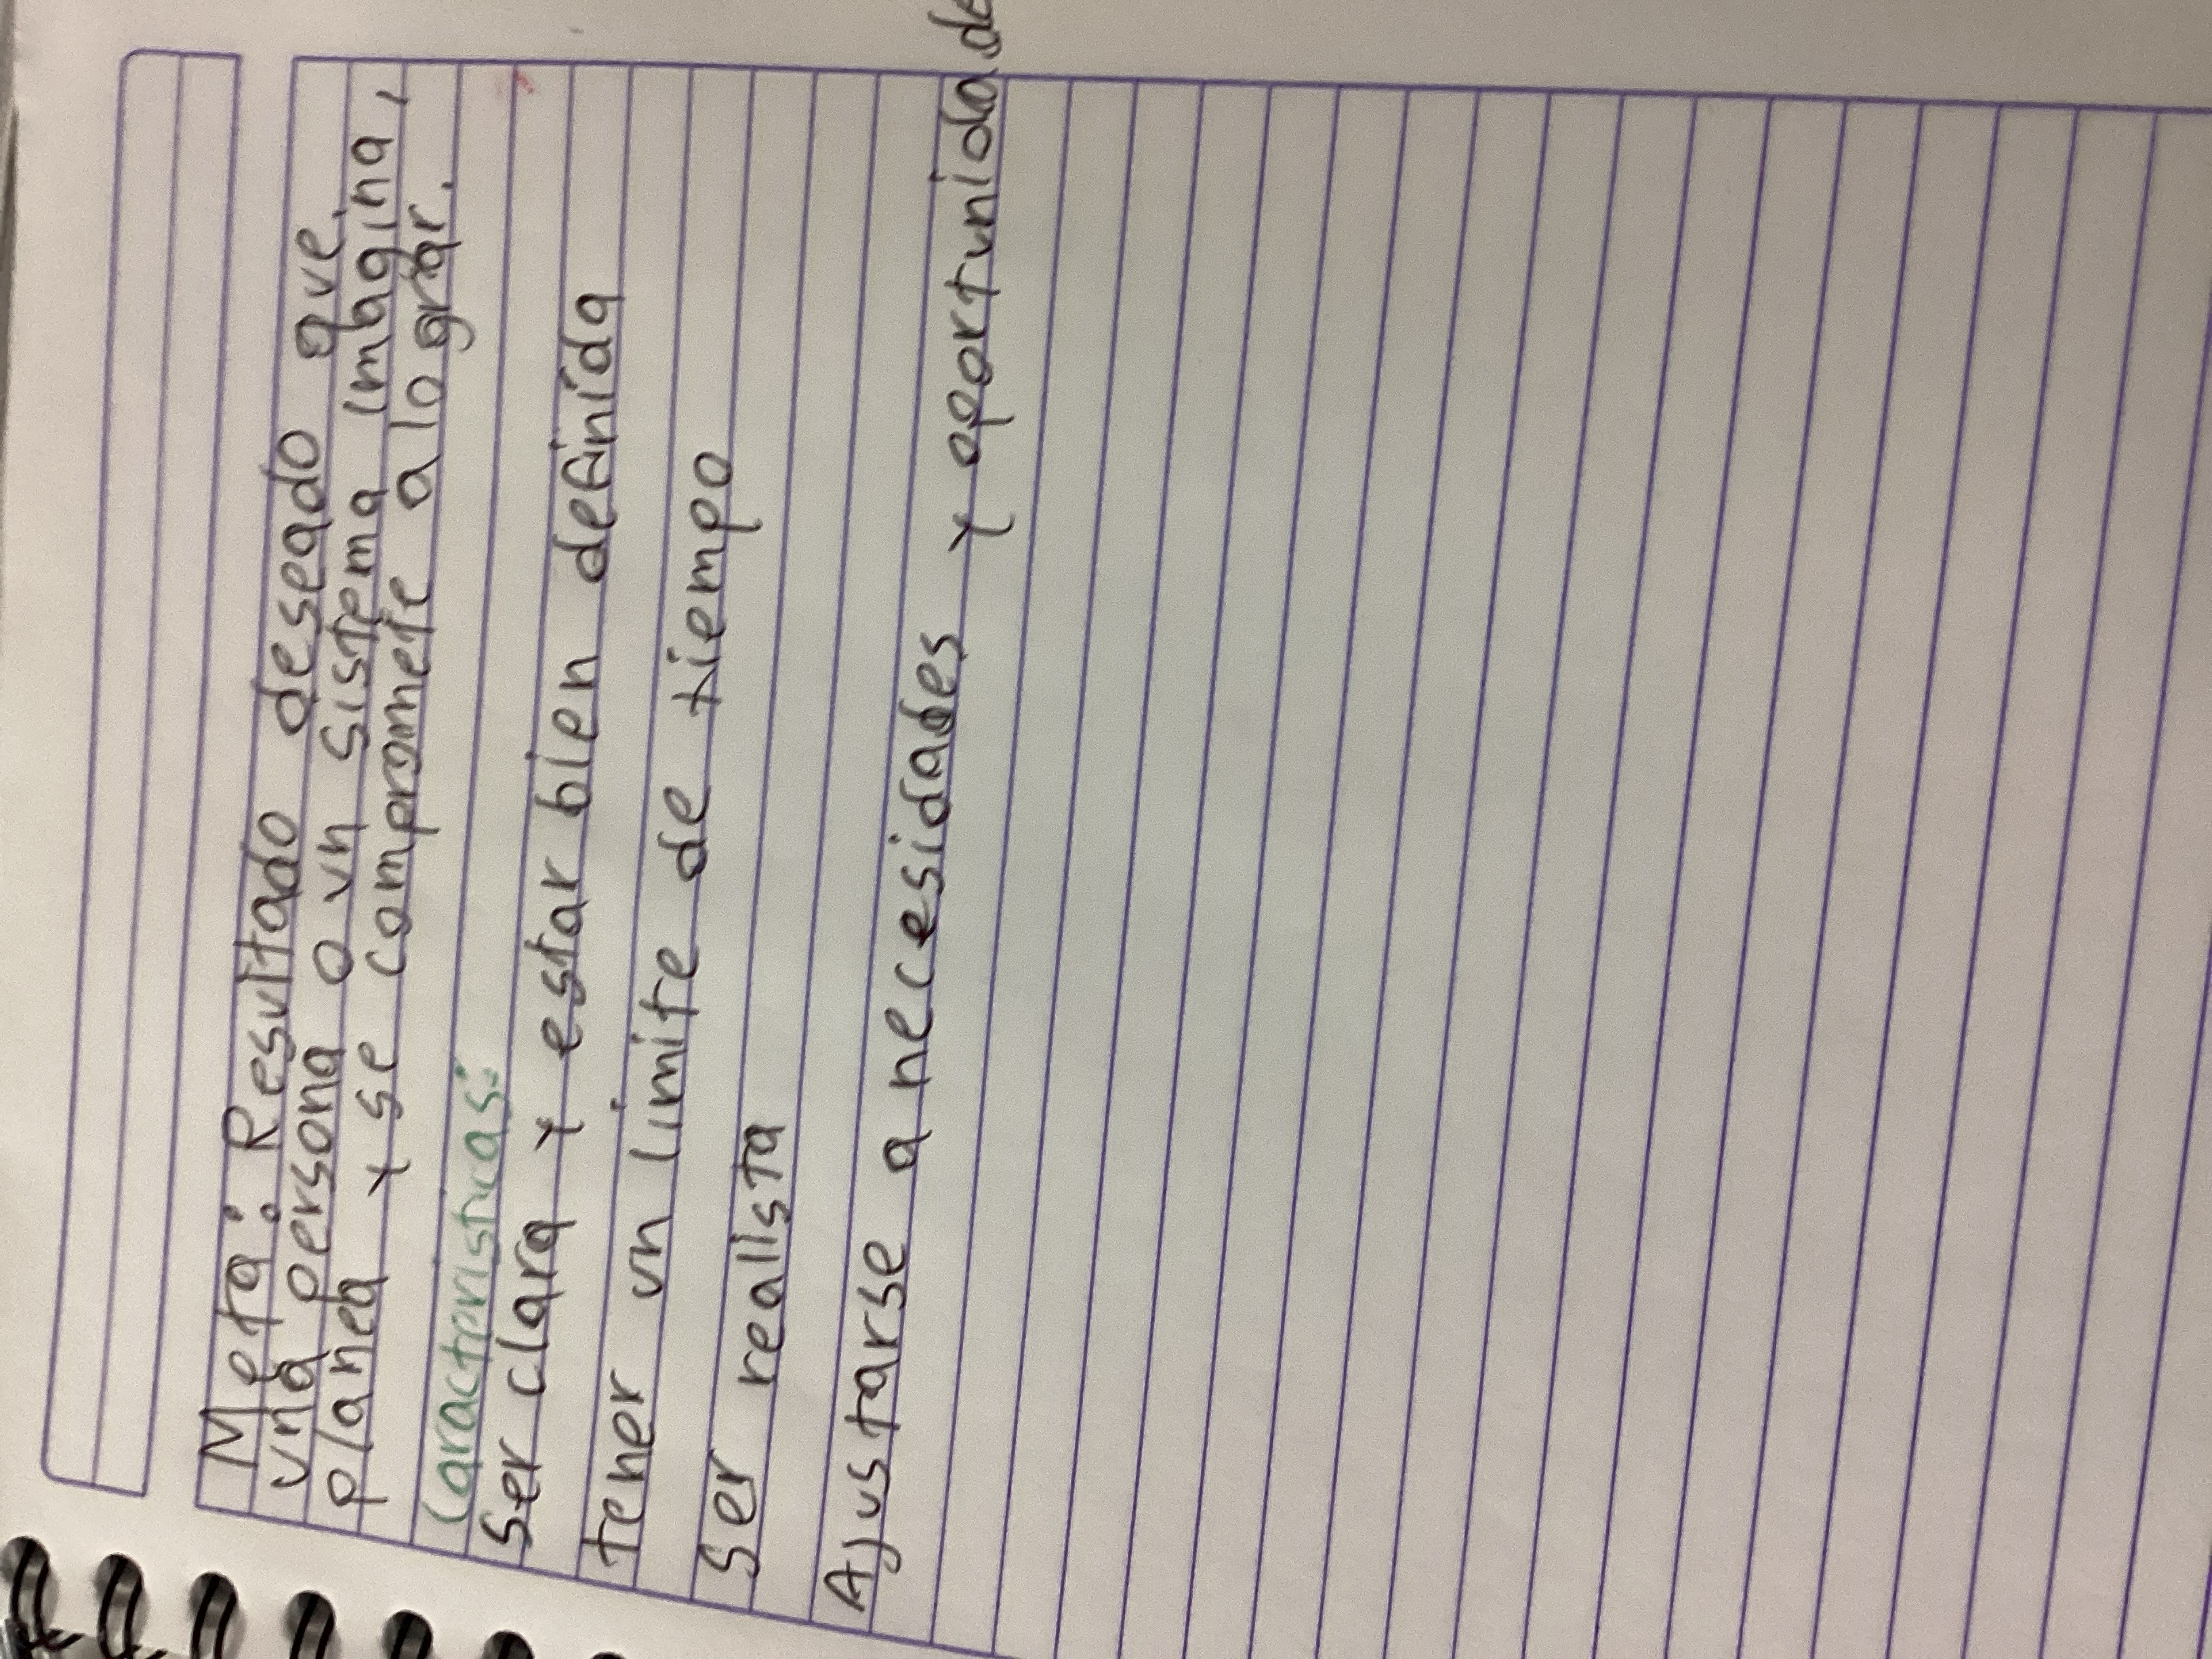 Meta: Resultado deseado que
una persona o un sistema imagina,
planea y se compromete a lograr.
Características:
Ser clara y estar bien definida
tener un limite de tiempo
Ser realista
Ajustarse a necesidades y oportunidades